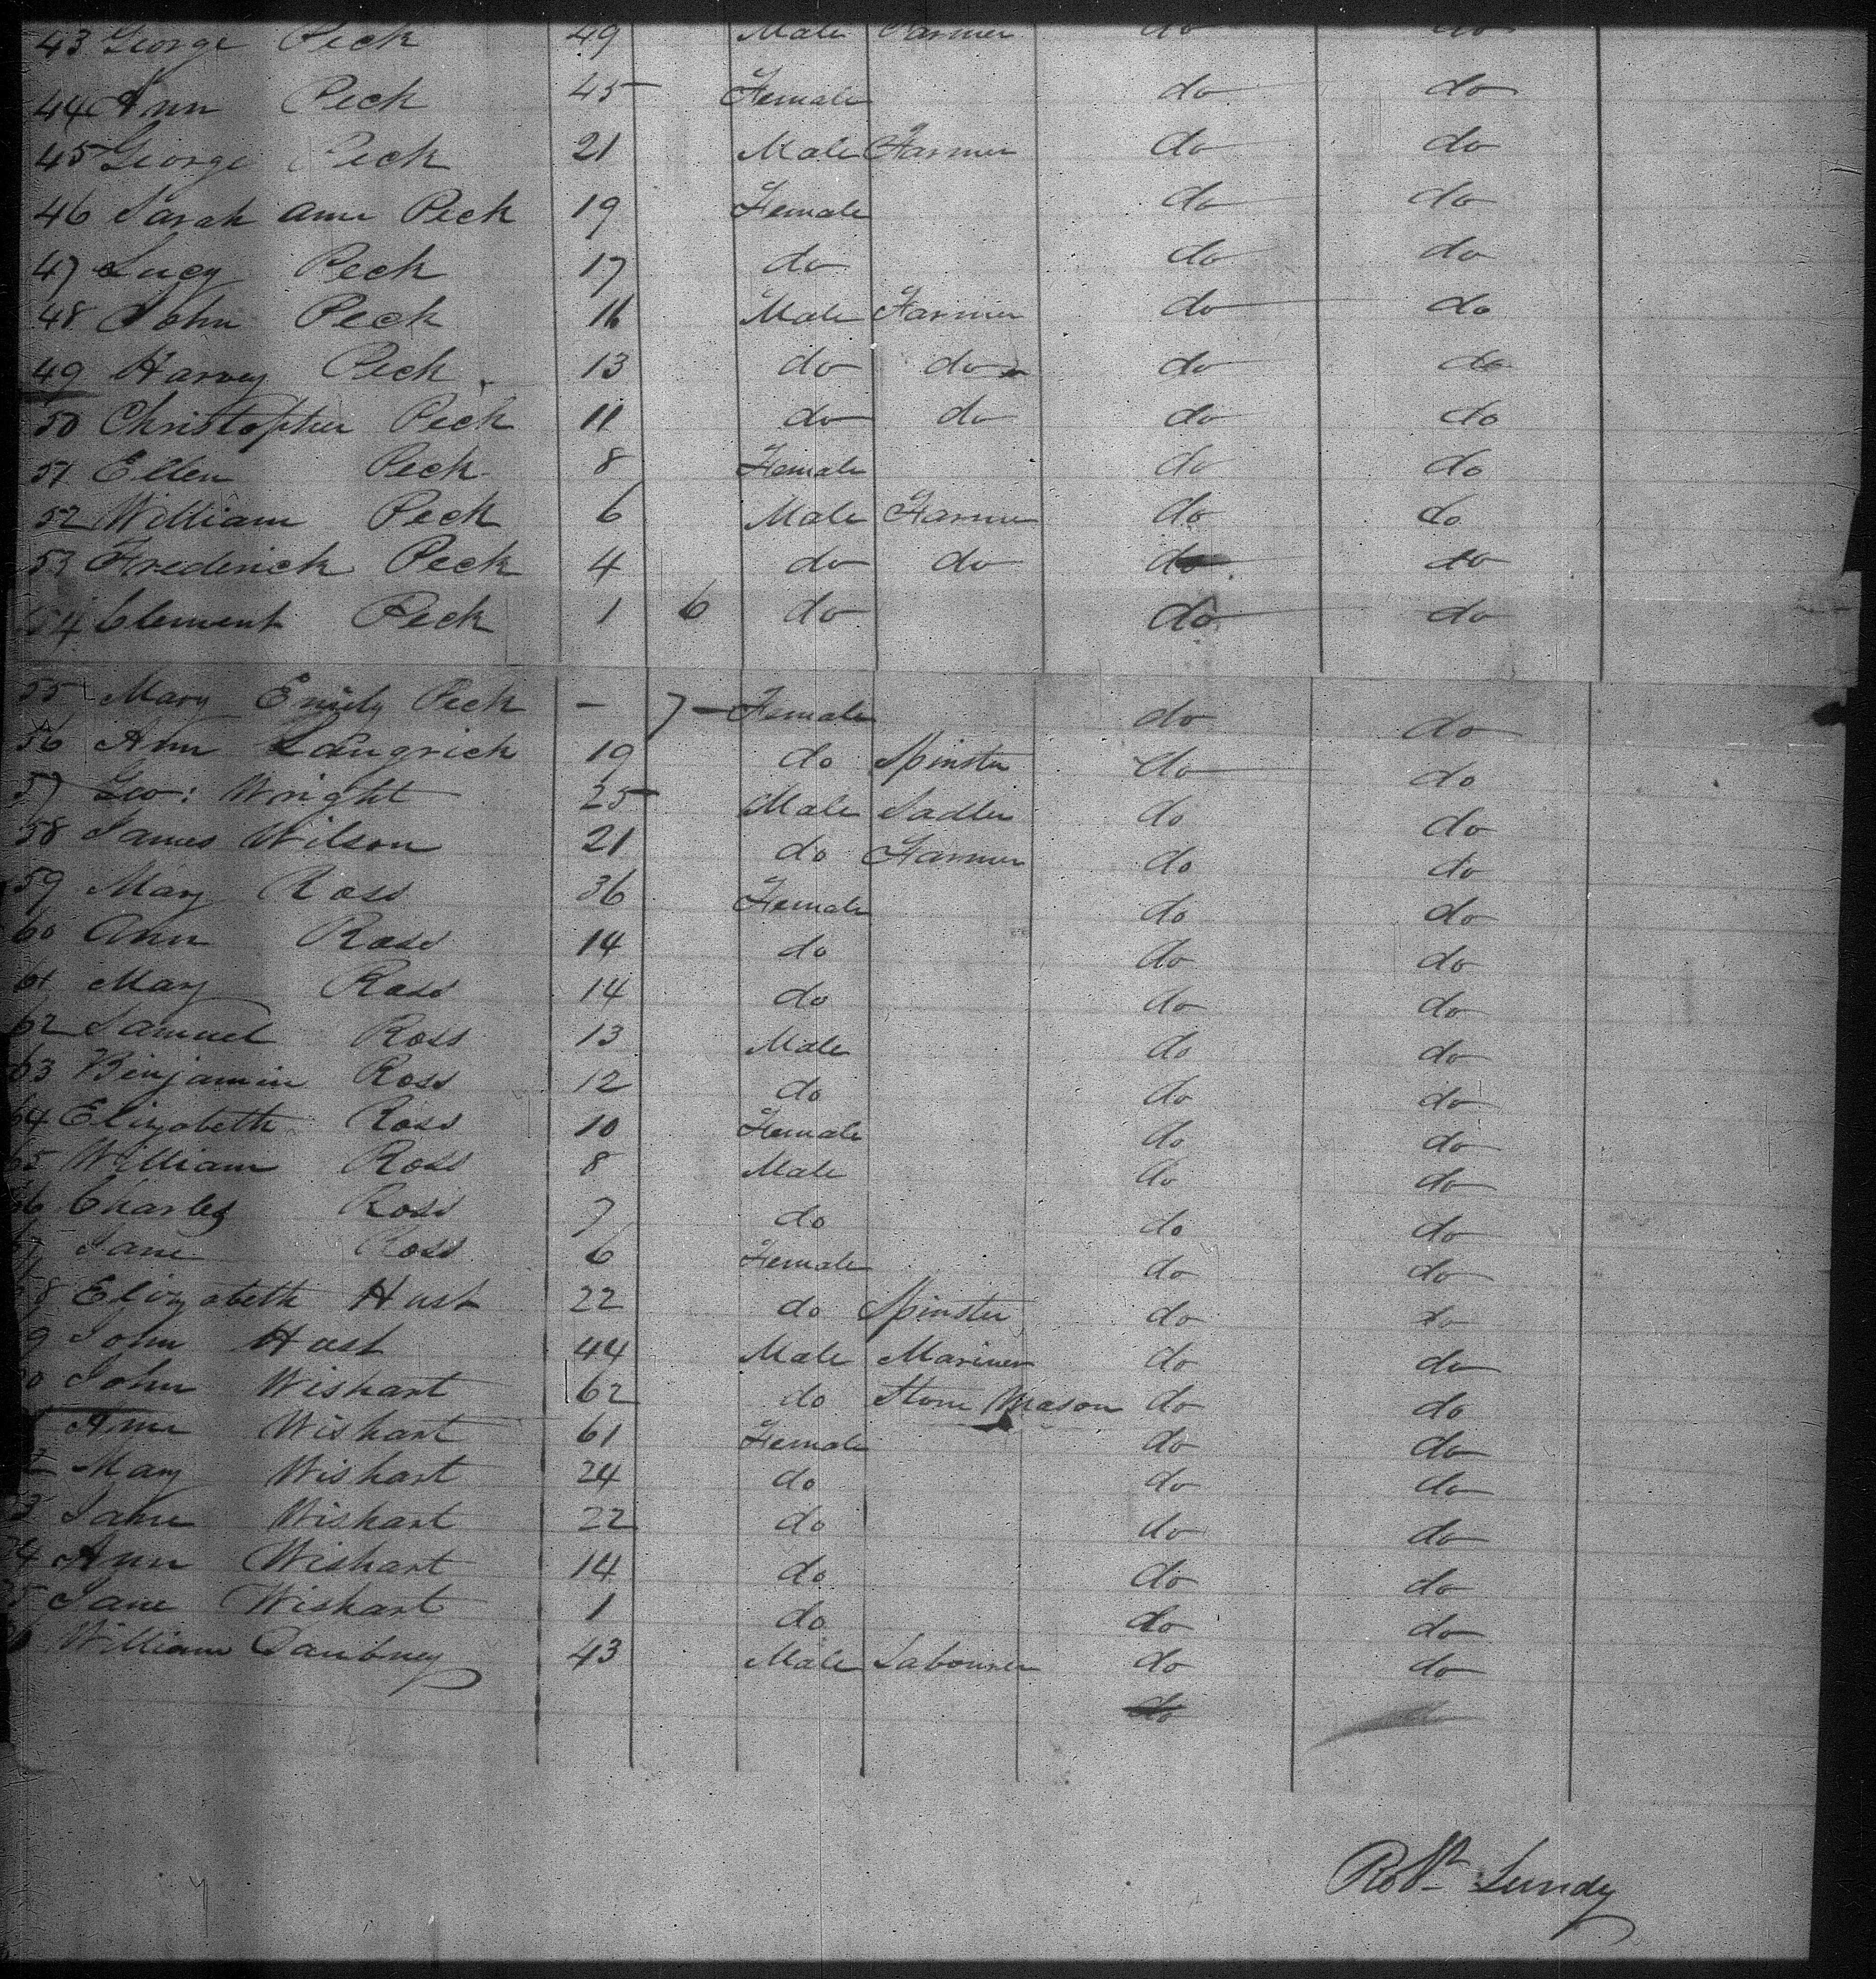 43 George Peck 49 Male Farmer do do
44 Ann Peck 45 Female do do
45 George Peck 21 Male Farmer do do
46 Sarah Ann Peck 19 Female do do
47 Lucy Peck 17 do do do
48 John Peck 16 Male Farmer do do
49 Harvey Peck 13 do do do do
50 Christopher Peck 11 do do do do
51 Ellen Peck 8 Female do do
52 William Peck 6 Male Farmer do do
53 Frederick Peck 4 do do do do
54 Clement Peck 1 6 do do do
55 Mary Emily Peck - 7 - Female do do
56 Ann Langrich 19 do Spinster do do
57 Geo: Wright 25 Male Sadler do do
58 James Wilson 21 do Farmer do do
59 Mary Ross 36 Female do do
60 Ann Ross 14 do do do
61 Mary Ross 14 do do do
62 Samuel Ross 13 Male do do
63 Binjamin Ross 12 do do do
64 Elizabeth Ross 10 Female do do
65 William Ross 8 Male do do
66 Charles Ross 7 do do do
67 Jane Ross 6 Female do do
8 Elizabeth Hust 22 do Spinster do do
9 John Hust 44 Male Mariner do do
0 John Wishart 62 do Stone Mason do do
Ann Wishart 61 Female do do
2 Mary Wishart 24 do do do
3 Jane Wishart 22 do do do
74 Ann Wishart 14 do do do
5 Jane Wishart 1 do do do
William Daubney 43 Male Labourer do do
do
Robt Lundy